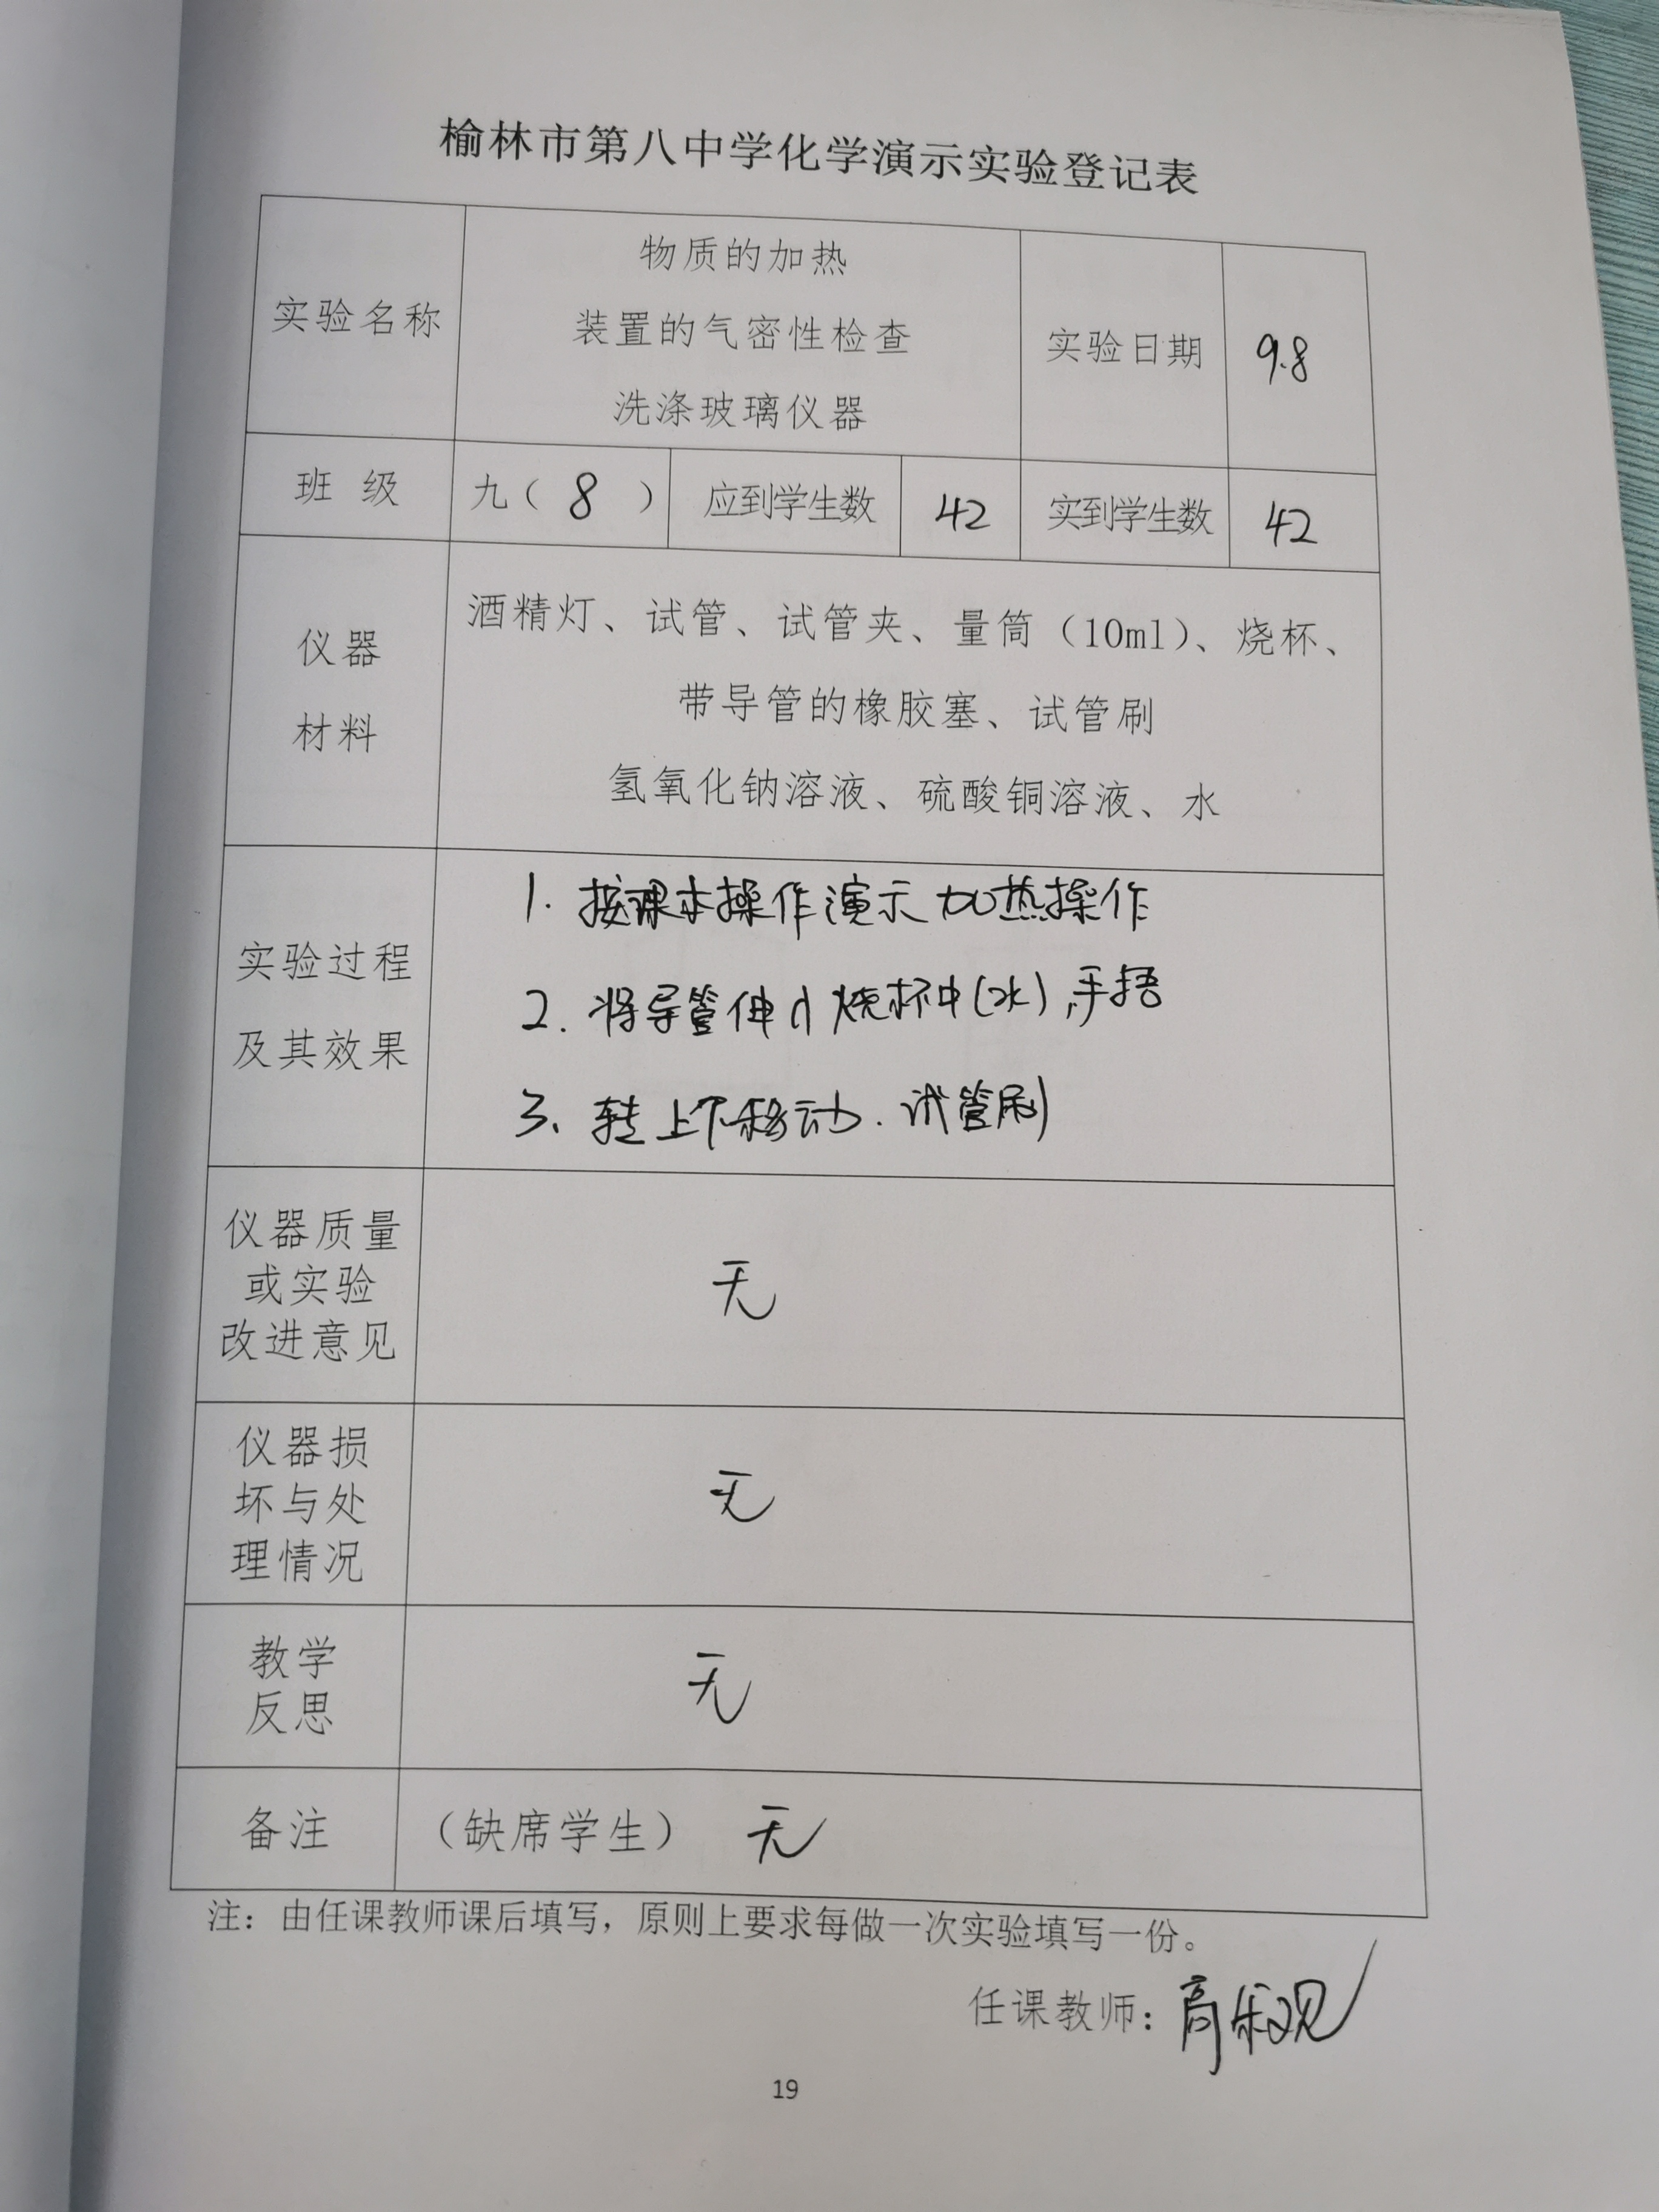 榆林市第八中学化学演示实验登记表
实验名称
物质的加热
装置的气密性检查
洗涤玻璃仪器
实验日期
9.8
班 级
九（ 8 ）
应到学生数
42
实到学生数
42
仪器
材料
酒精灯、试管、试管夹、量筒（10ml）、烧杯、
带导管的橡胶塞、试管刷
氢氧化钠溶液、硫酸铜溶液、水
实验过程
及其效果
1. 按课本操作演示加热操作
2. 将导管伸入烧杯中(水),手捂
3、转上下移动.试管刷
仪器质量
或实验
改进意见
无
仪器损
坏与处
理情况
无
教学
反思
无
备注
（缺席学生） 无
注：由任课教师课后填写，原则上要求每做一次实验填写一份。
任课教师：高乐观
19